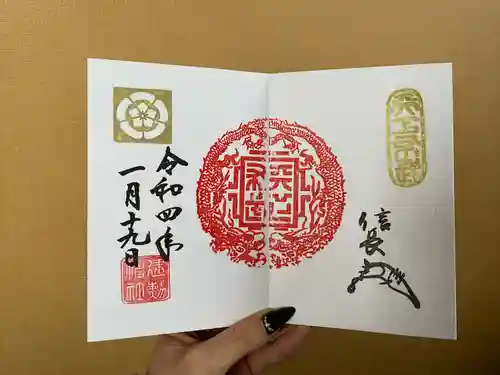 天下布武
信長
令和四年
一月十九日
建勲神社